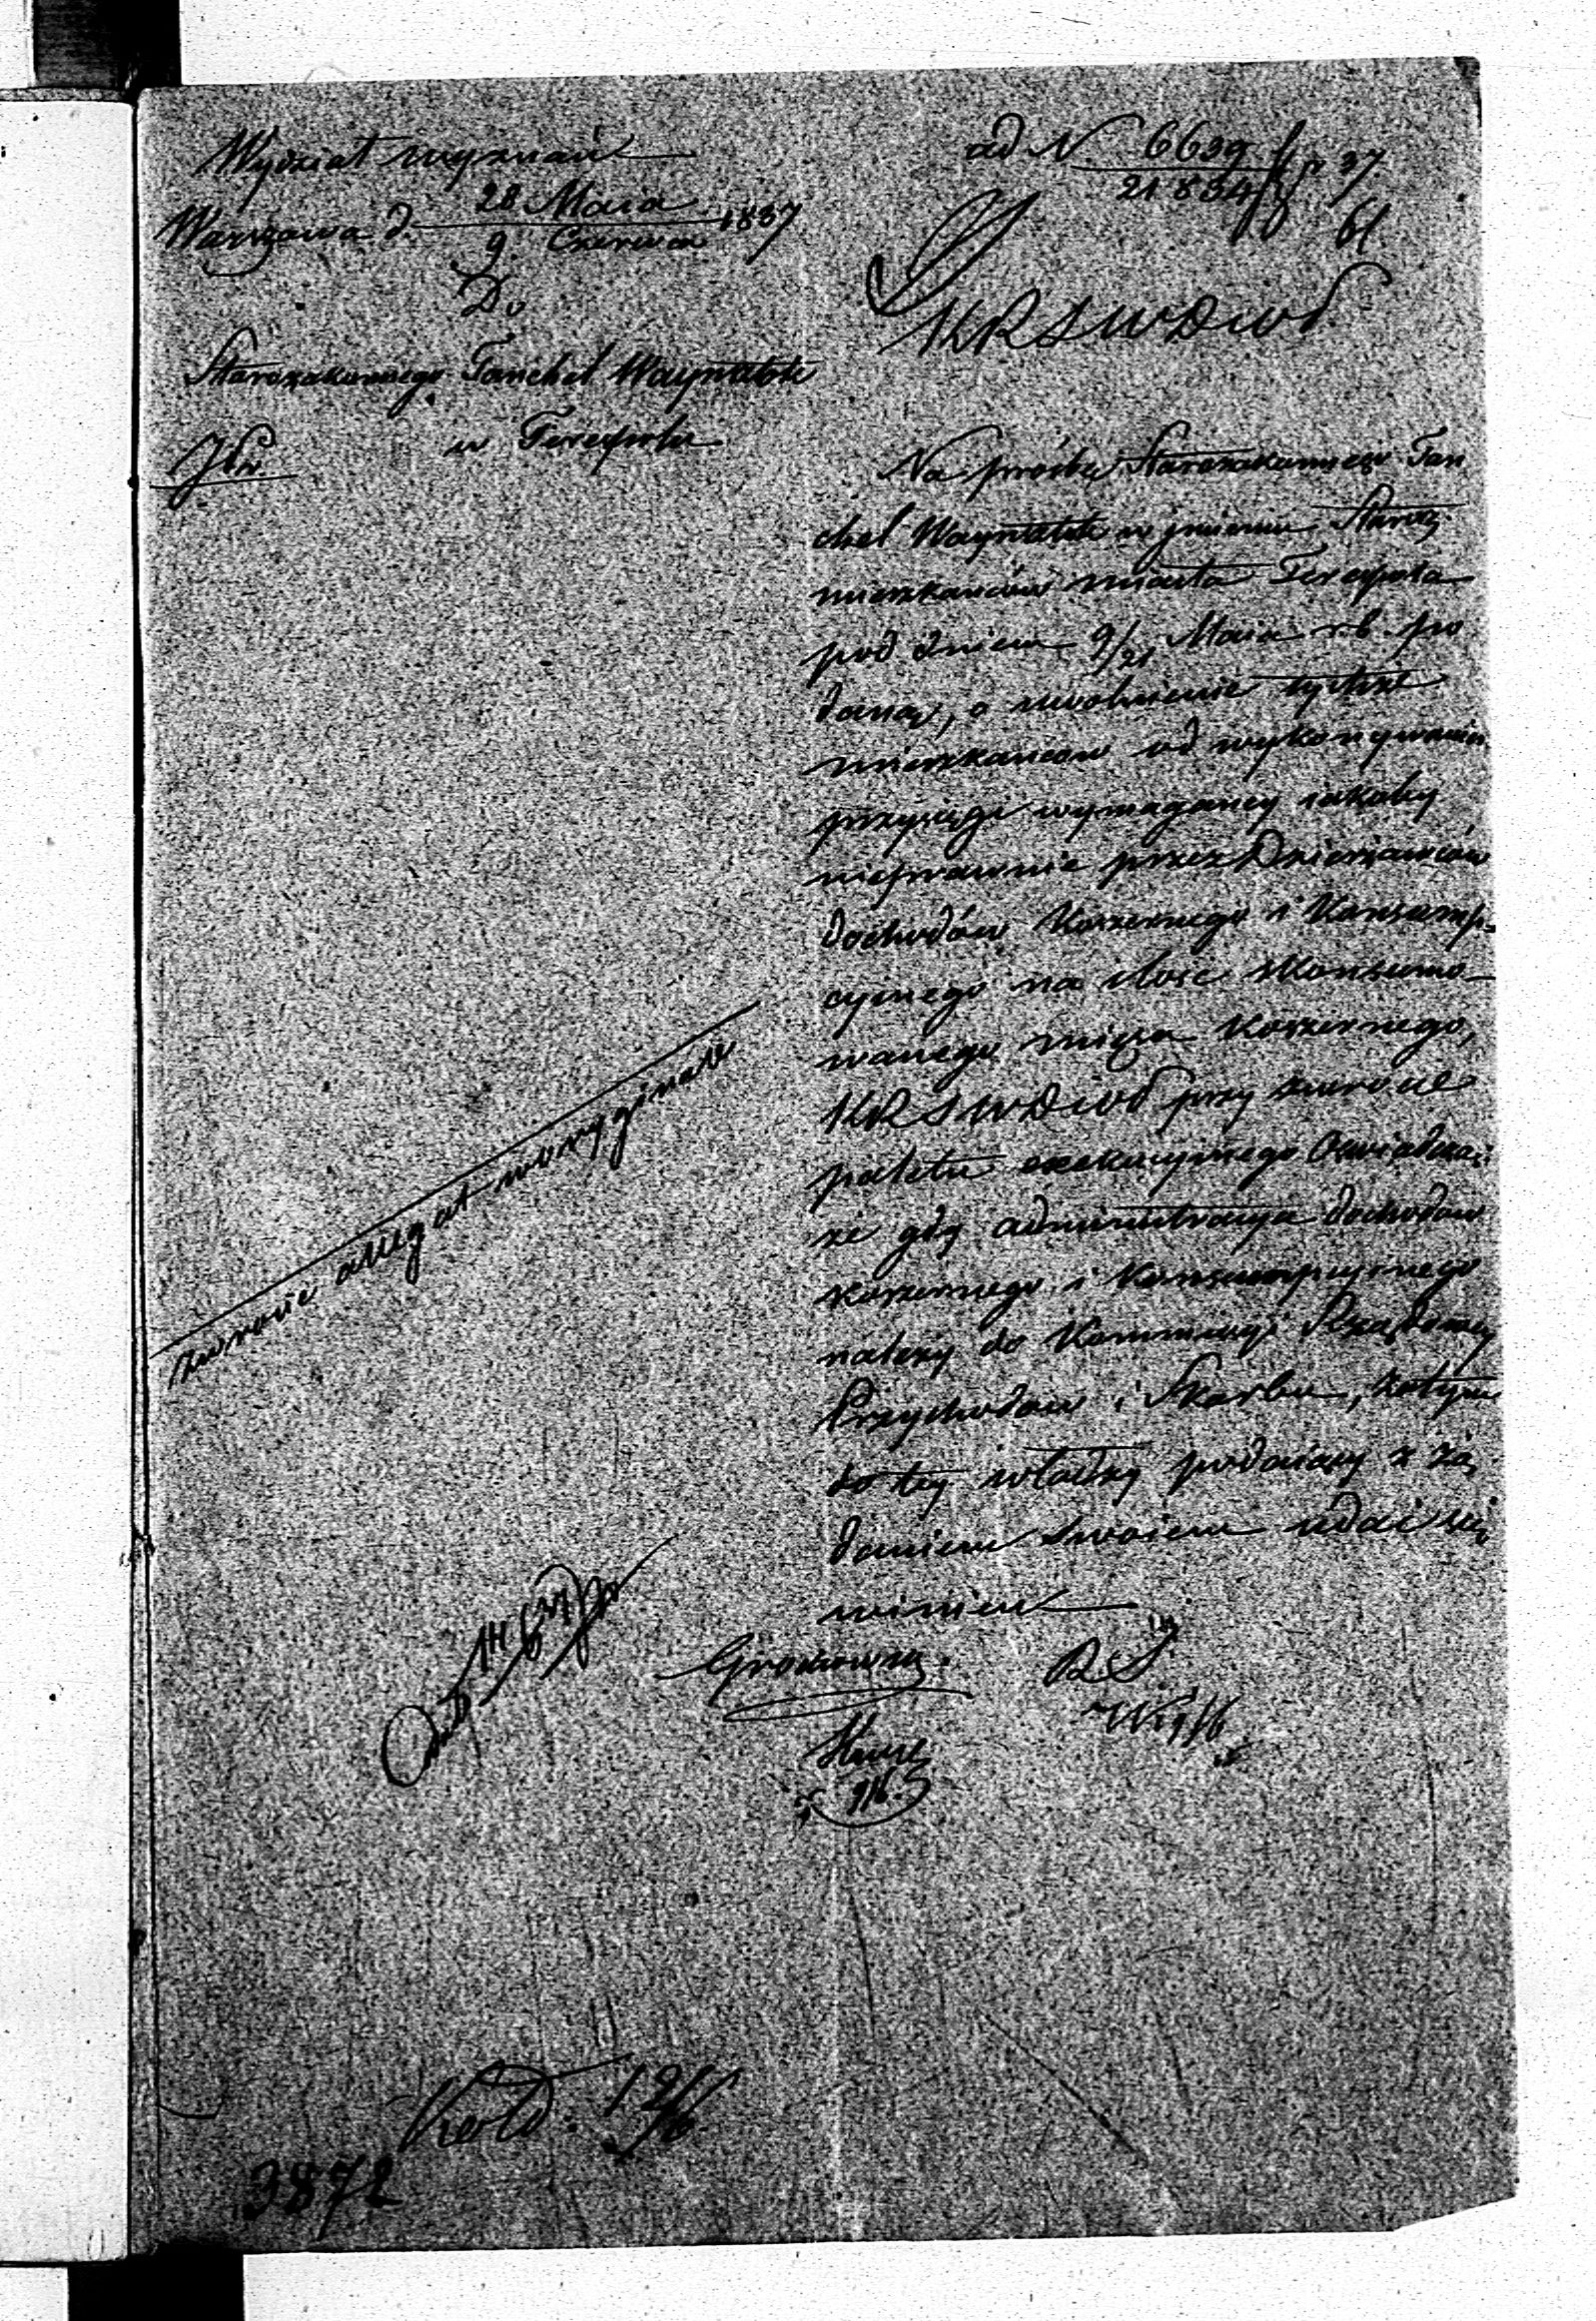 Wydział wyznań
Warszawa d. 28 Maia
9 Czerwca 1837
Do
Starozakonnego Tanchel Waynsztok
w Terespolu
ad N. 6639
21834
37
61
KRSWDiOP.
Na prośbę Starozakonnego Tan
chel Waynsztok w jmieniu Staroz.
mieszkańców miasta Terespola
pod dniem 9/21 Maia r. b. po
daną, o uwolnienie tychże
mieszkańców od wykonywania
przysięgi wymaganey iakoby
nieprawnie przez Dzierżawców
dochodów koszernego i Konsump-
cyinego na ilość skonsumo-
wanego mięsa koszernego,
KRSWDiOP przy zwrocie
paletu exekucyinego Oswiadcza:
że gdy administracya dochodów
koszernego i Konsumpcyinego
należy do Kommissyi Rządowey
Przychodów i Skarbu, zatym
do tey władzy podaiący z żą
daniem swoiem udać się
winien
zwrócić allegat w oryginale
Grodzkowski
RS
9/6
Koll: 12/6
3872